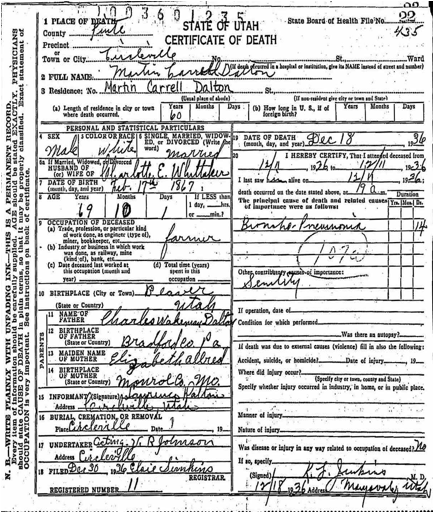 1003601235
1 PLACE OF DEATH
STATE OF UTAH
State Board of Health File No. 22
County Piute
CERTIFICATE OF DEATH
435
Precinct
Town or City Circleville No. St. Ward
(If death occurred in a hospital or institution, give its NAME instead of street and number)
2 FULL NAME Martin Carrell Dalton
3 Residence: No. Martin Carrell Dalton St.
(Usual place of abode) (If non-resident give city or town and State)
(a) Length of residence in city or town where death occurred. Years 60 Months Days
(b) How long in U. S., if of foreign birth? Years Months Days
PERSONAL AND STATISTICAL PARTICULARS
4 SEX Male
5 COLOR or RACE White
6 SINGLE, MARRIED, WIDOWED, OR DIVORCED (Write the word) Married
6a If Married, Widowed, or Divorced HUSBAND OF (or) WIFE OF Charlotte E. Whittaker
7 DATE OF BIRTH (month, day, and year) Feb. 17th 1867
8 AGE Years 69 Months 10 Days 1 If LESS than 1 day, hrs. or min.
9 OCCUPATION OF DECEASED
(a) Trade, profession, or particular kind of work done, as engineer (type of), miner, bookkeeper, etc. farmer
(b) Industry or business in which work was done, as railway, mine (kind of), bank, etc.
(c) Date deceased last worked at this occupation (month and year)
(d) Total time (years) spent in this occupation
10 BIRTHPLACE (City or Town) Beaver
(State or Country) Utah
PARENTS
11 NAME OF FATHER Charles Wakeman Dalton
12 BIRTHPLACE OF FATHER (State or Country) Bradford Co. Pa.
13 MAIDEN NAME OF MOTHER Elizabeth Allred
14 BIRTHPLACE OF MOTHER (State or Country) Monroe Co. Mo.
15 INFORMANT (Signature) Dalton
Address Circleville Utah
16 BURIAL, CREMATION, OR REMOVAL
Place Circleville Date 19
17 UNDERTAKER R Johnson
Address Circleville
18 FILED Dec 30 1936 Elsie Simkins
REGISTRAR.
REGISTERED NUMBER 11
19 DATE OF DEATH (month, day, and year) Dec 18 1936
20 I HEREBY CERTIFY, That I attended deceased from
1936 to 12/11 1936
I last saw alive on 12/11 1936
death occurred on the date stated above, at 19 a m.
The principal cause of death and related causes of importance were as follows:
Duration Yrs. Mos. Ds.
Broncho-Pneumonia 14
107a
Other contributory causes of importance:
Senility
If operation, date of
Condition for which performed
Was there an autopsy?
If death was due to external causes (violence) fill in also the following:
Accident, suicide, or homicide? Date of injury 19
Where did injury occur?
(Specify city or town, county and State)
Specify whether injury occurred in industry, in home, or in public place.
Manner of injury
Nature of injury
Was disease or injury in any way related to occupation of deceased? No
If so, specify
(Signed) M. D.
12/18 1936 Address Marysvale Utah
N. B.—WRITE PLAINLY, WITH UNFADING INK—THIS IS A PERMANENT RECORD.